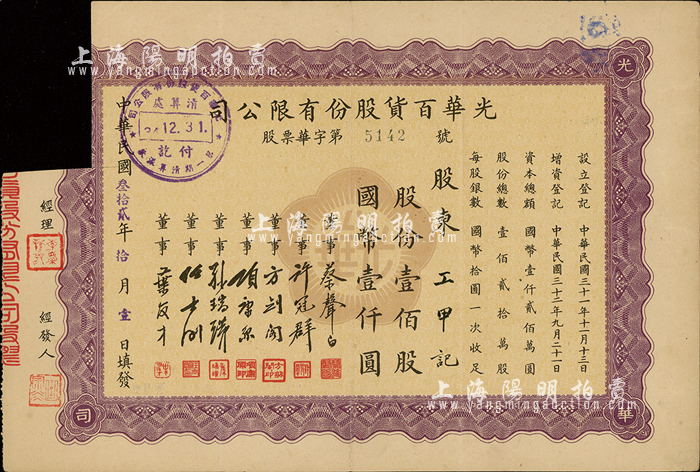 上海陽明拍賣
www.yangmingauction.com
光
華
司
光華百貨股份有限公司
股票華字第 5142 號
設立登記 中華民國三十一年十一月十三日
增資登記 中華民國三十二年九月二十一日
資本總額 國幣壹仟貳佰萬圓
股份總數 壹佰貳拾萬股
每股銀數 國幣拾圓一次收足
股東 工甲記
股份壹佰股
國幣壹仟圓
董事 蔡聲白
董事 許冠群
董事 方剑阁
董事
董事 孫瑞璜
董事
董事 葉友才
中華民國叁拾貳年拾月壹日填發
清算處
12. 31.
付訖
第一期清算派款
經理
經發人
上海陽明拍賣
www.yangmingauction.com